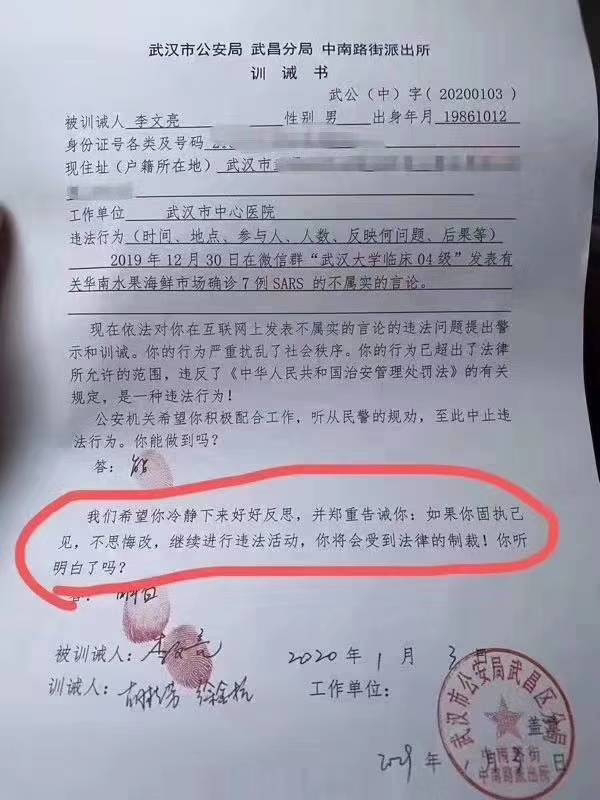 武汉市公安局 武昌分局 中南路街派出所
训 诫 书
武公（中）字（20200103）
被训诫人 李文亮 性别 男 出身年月 19861012
身份证号各类及号码
现住址（户籍所在地） 武汉市
工作单位 武汉市中心医院
违法行为（时间、地点、参与人、人数、反映何问题、后果等）
2019 年 12 月 30 日在微信群“武汉大学临床 04 级”发表有
关华南水果海鲜市场确诊 7 例 SARS 的不属实的言论。
现在依法对你在互联网上发表不属实的言论的违法问题提出警
示和训诫。你的行为严重扰乱了社会秩序。你的行为已超出了法律
所允许的范围，违反了《中华人民共和国治安管理处罚法》的有关
规定，是一种违法行为！
公安机关希望你积极配合工作，听从民警的规劝，至此中止违
法行为。你能做到吗？
答：能
我们希望你冷静下来好好反思，并郑重告诫你：如果你固执己
见，不思悔改，继续进行违法活动，你将会受到法律的制裁！你听
明白了吗？
答：明白
被训诫人：李文亮 2020 年 1 月 3 日
训诫人： 工作单位：
武汉市公安局武昌区分局
盖章
中南路街
中南路派出所
月 3 日